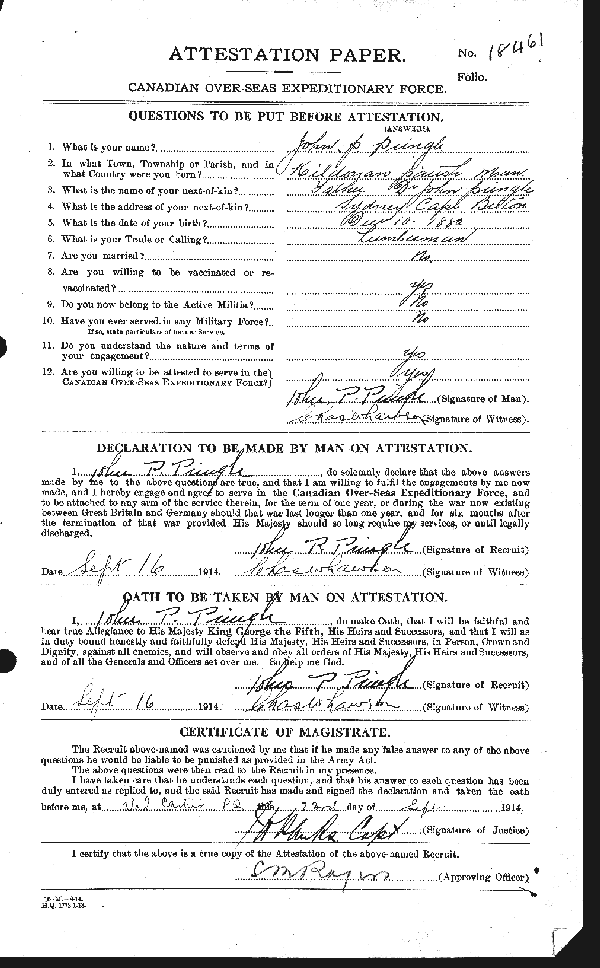 ATTESTATION PAPER.
No. 18461
Folio.
CANADIAN OVER-SEAS EXPEDITIONARY FORCE.
QUESTIONS TO BE PUT BEFORE ATTESTATION.
(ANSWERS).
1. What is your name? John P Pringle
2. In what Town, Township or Parish, and in
what Country were you born? Kildonan
3. What is the name of your next-of-kin? Father Dr John Pringle
4. What is the address of your next-of-kin? Sydney Cape Breton
5. What is the date of your birth?
6. What is your Trade or Calling? Lumberman
7. Are you married? No
8. Are you willing to be vaccinated or re-
vaccinated? yes
9. Do you now belong to the Active Militia? No
10. Have you ever served in any Military Force? No
If so, state particulars of former Service.
11. Do you understand the nature and terms of
your engagement? yes
12. Are you willing to be attested to serve in the
CANADIAN OVER-SEAS EXPEDITIONARY FORCE? yes
John P. Pringle (Signature of Man).
(Signature of Witness).
DECLARATION TO BE MADE BY MAN ON ATTESTATION.
I, John P. Pringle, do solemnly declare that the above answers
made by me to the above questions are true, and that I am willing to fulfil the engagements by me now
made, and I hereby engage and agree to serve in the Canadian Over-Seas Expeditionary Force, and
to be attached to any arm of the service therein, for the term of one year, or during the war now existing
between Great Britain and Germany should that war last longer than one year, and for six months after
the termination of that war provided His Majesty should so long require my services, or until legally
discharged.
John P. Pringle (Signature of Recruit)
Date Sept 16 1914. (Signature of Witness)
OATH TO BE TAKEN BY MAN ON ATTESTATION.
I, John P. Pringle, do make Oath, that I will be faithful and
bear true Allegiance to His Majesty King George the Fifth, His Heirs and Successors, and that I will as
in duty bound honestly and faithfully defend His Majesty, His Heirs and Successors, in Person, Crown and
Dignity, against all enemies, and will observe and obey all orders of His Majesty, His Heirs and Successors,
and of all the Generals and Officers set over me. So help me God.
John P Pringle (Signature of Recruit)
Date Sept 16 1914. (Signature of Witness)
CERTIFICATE OF MAGISTRATE.
The Recruit above-named was cautioned by me that if he made any false answer to any of the above
questions he would be liable to be punished as provided in the Army Act.
The above questions were then read to the Recruit in my presence.
I have taken care that he understands each question, and that his answer to each question has been
duly entered as replied to, and the said Recruit has made and signed the declaration and taken the oath
before me, at this day of 1914.
Capt (Signature of Justice)
I certify that the above is a true copy of the Attestation of the above-named Recruit.
(Approving Officer)